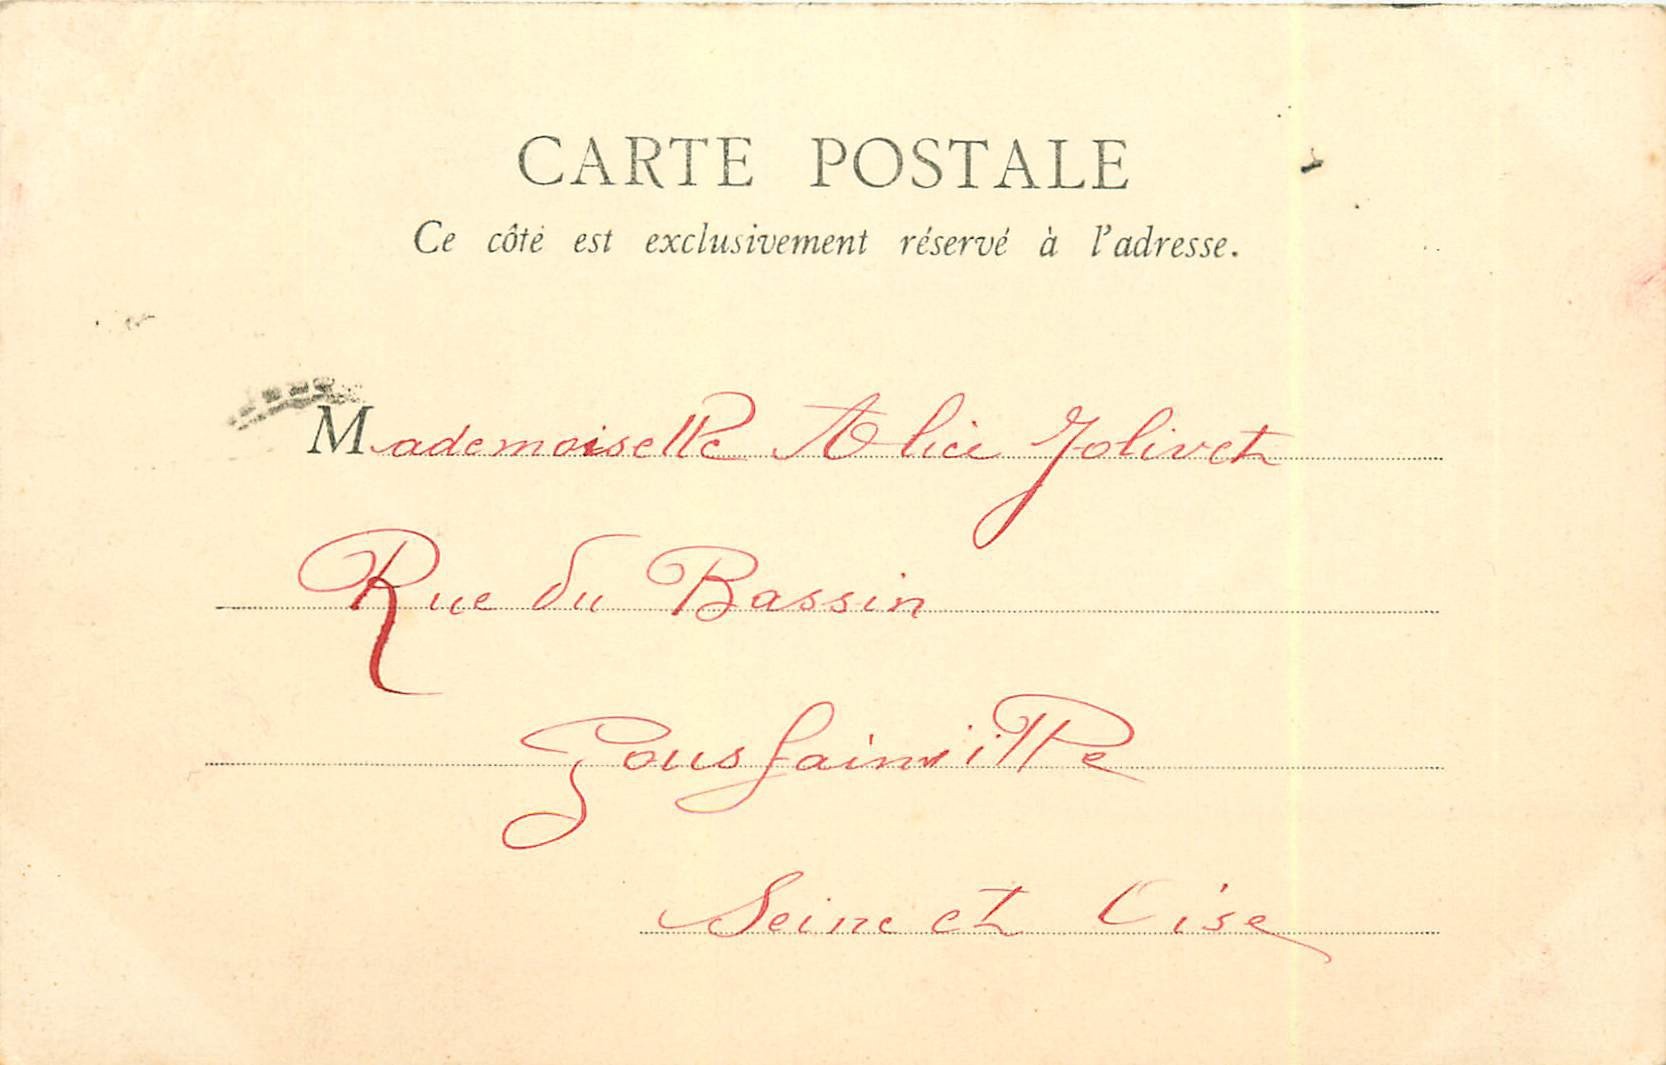 CARTE POSTALE
Ce côté est exclusivement réservé à l'adresse.
Mademoiselle Alice Jolivet
Rue du Bassin
Goussainville
Seine et Oise